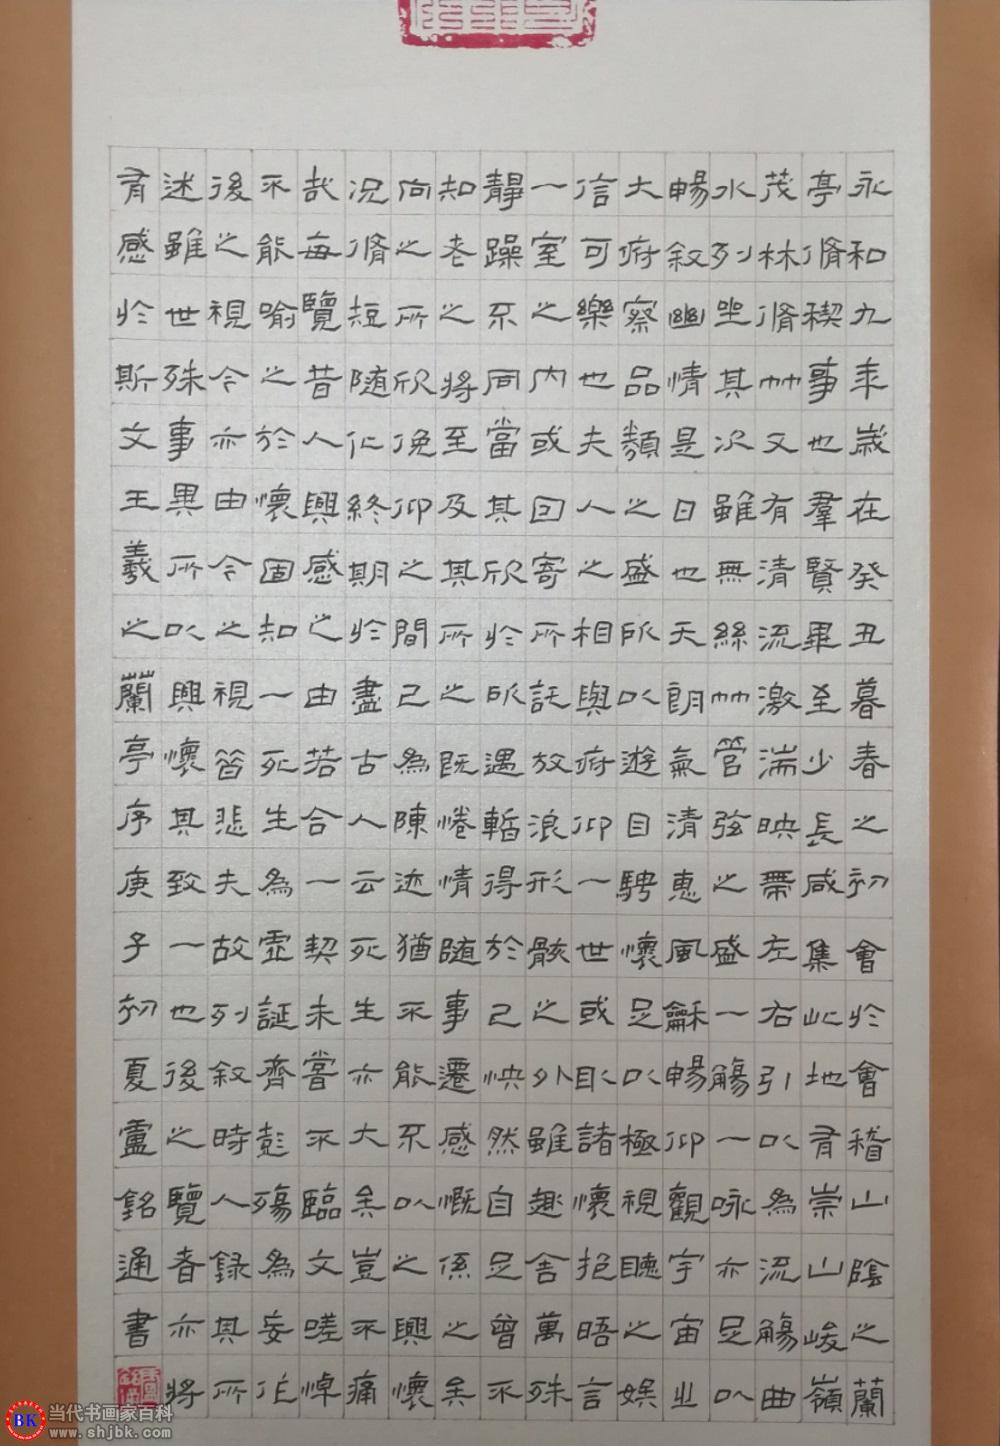 永和九年歲在癸丑暮春之初會於會稽山陰之蘭
亭脩禊事也羣賢畢至少長咸集此地有崇山峻嶺
茂林脩竹又有清流激湍映帶左右引以為流觴曲
水列坐其次雖無絲竹管弦之盛一觴一咏亦足以
暢敘幽情是日也天朗氣清惠風龢暢仰觀宇宙之
大俯察品類之盛所以遊目騁懷足以極視聽之娛
信可樂也夫人之相與俯仰一世或取諸懷抱晤言
一室之內或回寄所託放浪形骸之外雖趣舍萬殊
靜躁不同當其欣於所遇暫得於己怏然自足曾不
知老之將至及其所之既惓情隨事遷感慨係之矣
向之所欣俛仰之間已為陳迹猶不能不以之興懷
況脩短隨化終期於盡古人云死生亦大矣豈不痛
哉每覽昔人興感之由若合一契未嘗不臨文嗟悼
不能喻之於懷固知一死生為虛誕齊彭殤為妄作
後之視今亦由今之視昔悲夫故列敘時人錄其所
述雖世殊事異所以興懷其致一也後之覽者亦將
有感於斯文王羲之蘭亭序庚子初夏盧銘通書
BK 当代书画家百科
www.shjbk.com